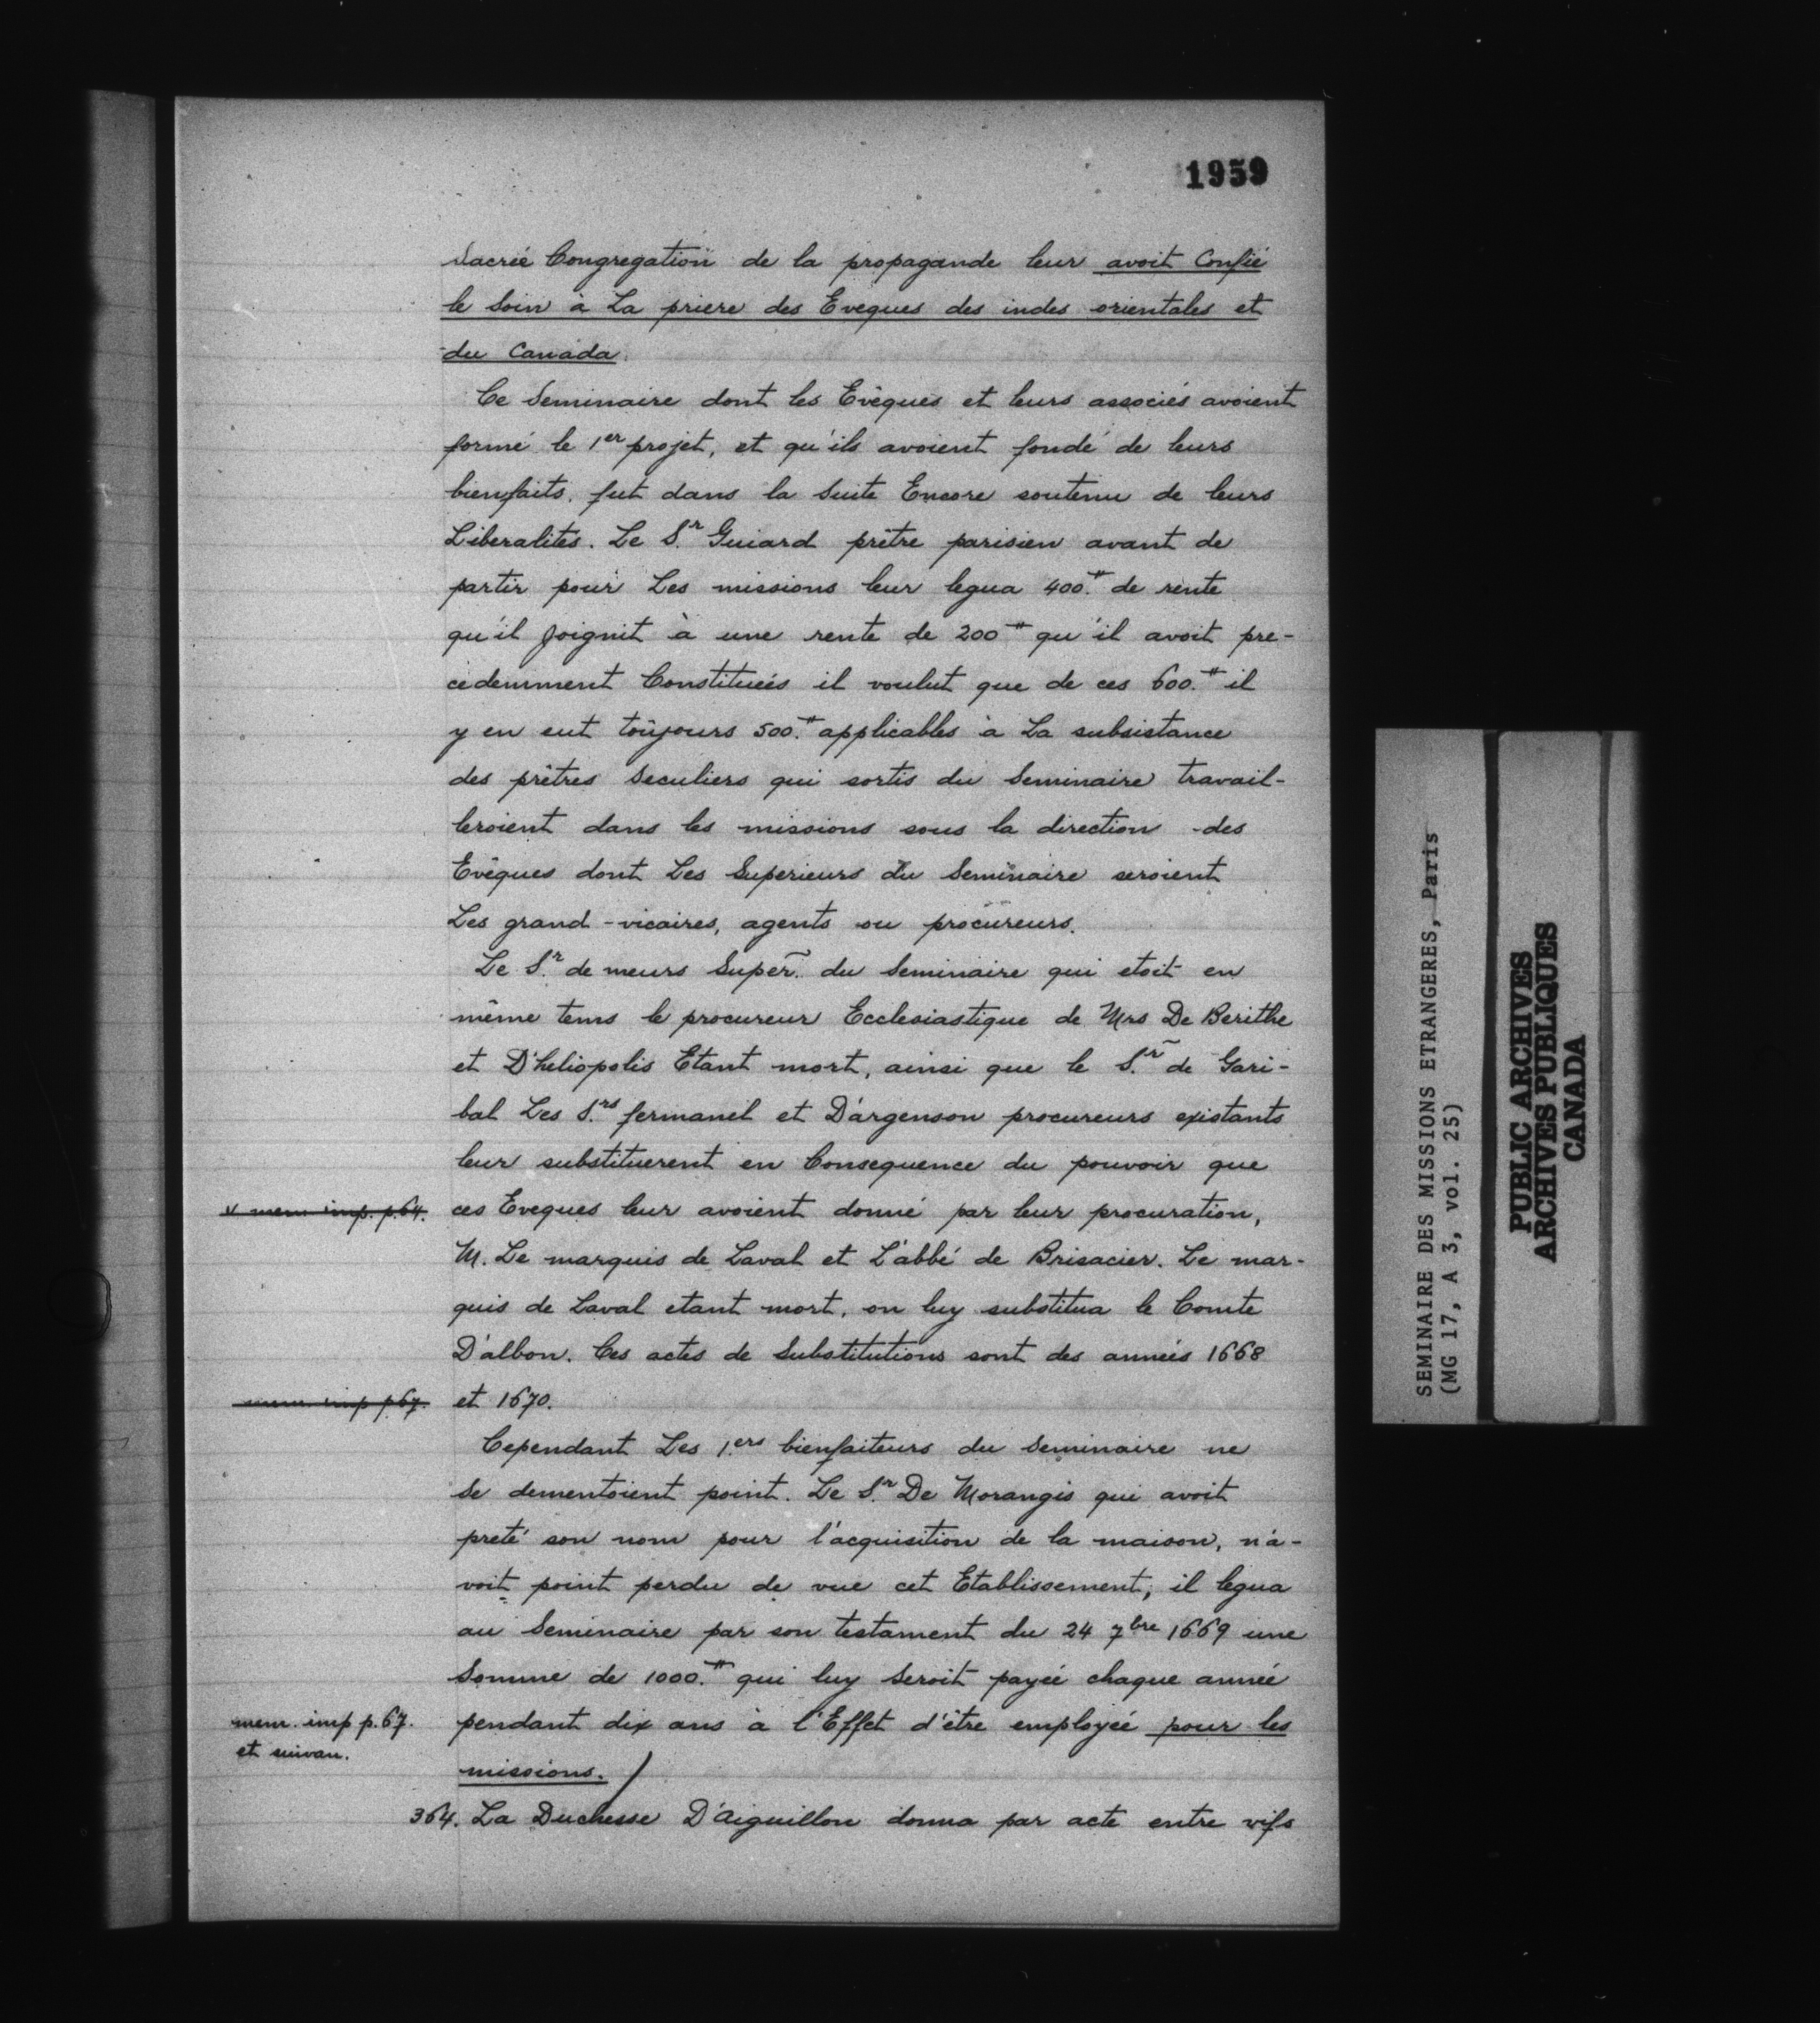 1959
Sacrée Congregation de la propagande leur avoit Confié
le Soin à La priere des Eveques des indes orientales et
du Canada.
Ce Seminaire dont les Evêques et leurs associés avoient
formé le 1er projet, et qu'ils avoient fondé de leurs
bienfaits, fut dans la Suite Encore soutenu de leurs
Liberalités. Le Sr. Guiard prêtre parisien avant de
partir pour Les missions leur legua 400.⁠# de rente
qu'il Joignit à une rente de 200# qu'il avoit pre-
cedemment Constituées il voulut que de ces 600.# il
y en eut toûjours 500.# applicables à La subsistance
des prêtres Seculiers qui sortis du Seminaire travail-
leroient dans les missions sous la direction des
Evêques dont Les Superieurs du Seminaire seroient
Les grand-vicaires, agents ou procureurs.
Le Sr. de meurs Super. du Seminaire qui etoit en
même tems le procureur Ecclesiastique de Mrs De Berithe
et D'heliopolis Etant mort, ainsi que le Sr. de Gari-
bal Les Srs. fermanel et D'argenson procureurs existants
leur substituerent en Consequence du pouvoir que
v mem imp. p.64.
ces Eveques leur avoient donné par leur procuration,
M. Le marquis de Laval et L'abbé de Brisacier. Le mar-
quis de Laval etant mort, on luy substitua le Comte
D'albon. Ces actes de Substitutions sont des années 1668
mem imp p.67.
et 1670.
Cependant Les 1.ers bienfaiteurs du Seminaire ne
se dementoient point. Le Sr. De Morangis qui avoit
preté son nom pour l'acquisition de la maison, n'a-
voit point perdu de vue cet Etablissement; il legua
au Seminaire par son testament du 24 7bre 1669 une
Somme de 1000.# qui luy Seroit payée chaque année
mem. imp p.67.
et suivan.
pendant dix ans à l'Effet d'être employée pour les
missions. /
364. La Duchesse D'aiguillon donna par acte entre vifs
SEMINAIRE DES MISSIONS ETRANGERES, Paris
(MG 17, A 3, vol. 25)
PUBLIC ARCHIVES
ARCHIVES PUBLIQUES
CANADA